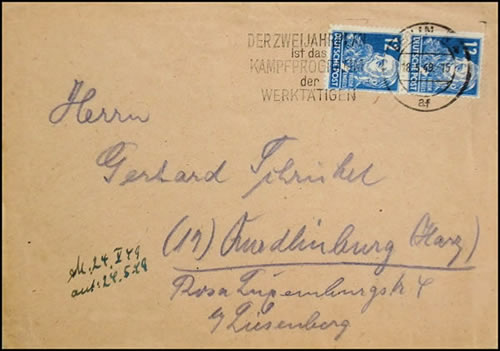 DER ZWEIJAHR
ist das
KAMPFPROGRAMM
der
WERKTÄTIGEN
12
DEUTSCHE POST
12
DEUTSCHE POST
LIN
af
Herrn
Gerhard
(19) Quedlinburg (Harz)
Rosa Luxemburgstr 4
b/ Liesenberg
24. V 49
24.5.49